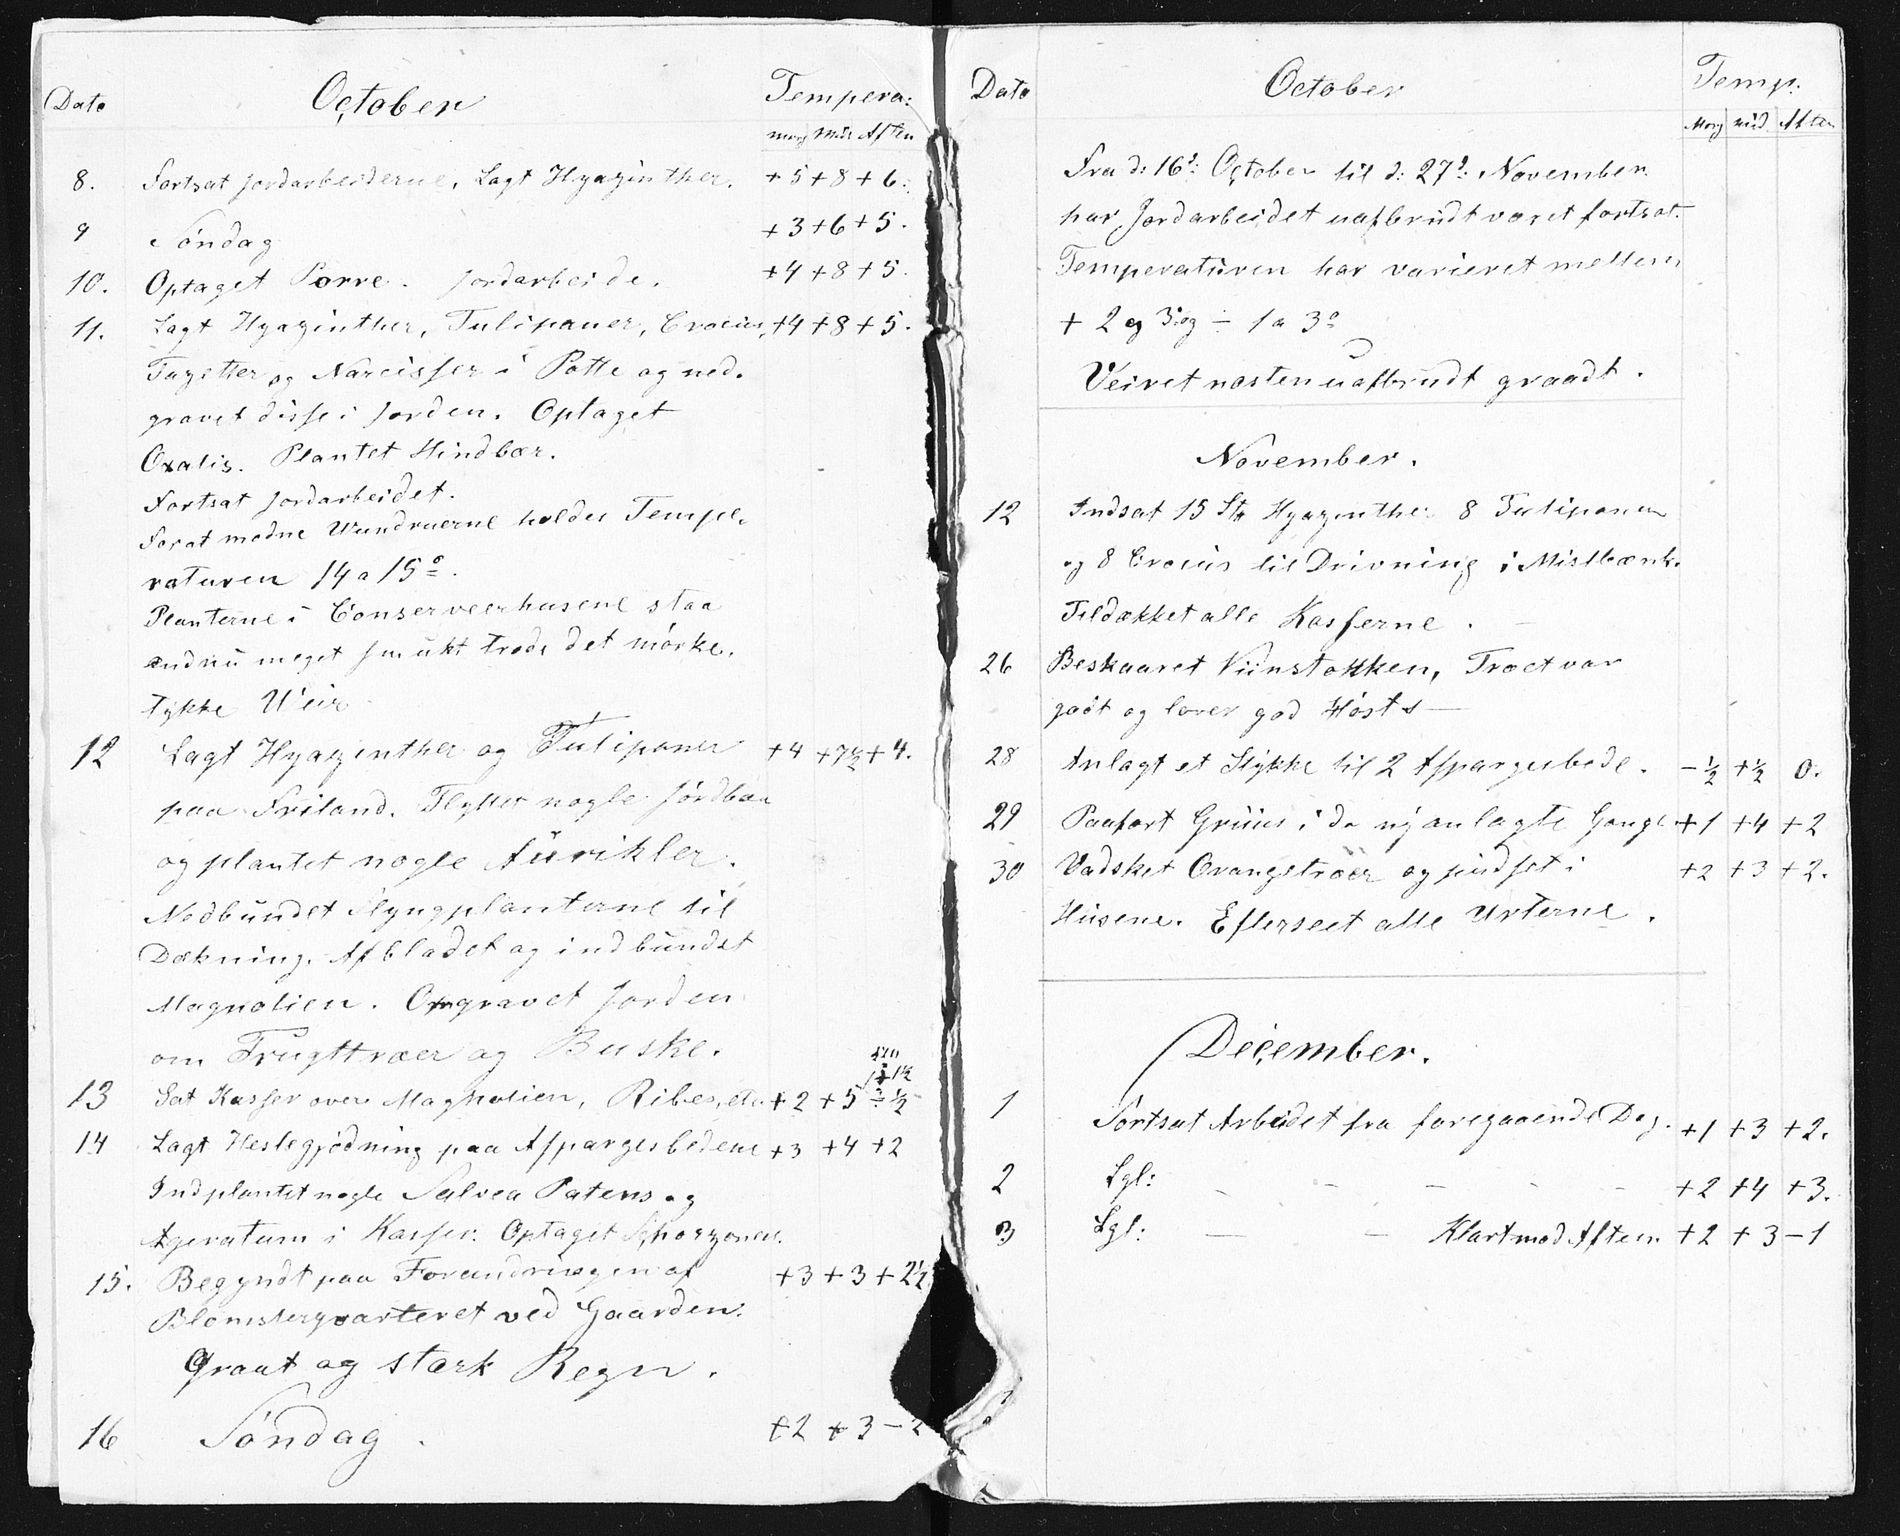 Dato October Tempera:
morg Mid Aften
8. Fortsat Jordarbeiderne, Lagt Hyazinther. +5 +8 +6.
9 Söndag +3 +6 +5.
10. Optaget Porre. Jordarbeide. +4 +8 +5.
11. Lagt Hyazinther, Tulipaner, Crocus, +4 +8 +5.
Tazetter og Narcisser i Potte og ned-
gravet disse i Jorden. Optaget
Oxalis. Plantet Hindbær.
Fortsat Jordarbeidet.
For at modne Vundruerne holdes Tempe-
raturen 14 a 15°.
Planterne i Conserveerhusene staa
endnu meget smukt trods det mörke,
tykke Veir
12 Lagt Hyazinther og Tulipaner +4 +7½ +4.
paa Friland. Flyttet nogle Jordbær
og plantet nogle Aurikler.
Nedbundet Slyngplanterne til
Dækning. Afbladet og indbundet
Magnolien. Omgravet Jorden
om Frugttræer og Buske.
13 Sat Kasser over Magnolien, Ribes, etc. +2 +5 ÷ ½
14 Lagt Hestegjödning paa Aspargesbedene +3 +4 +2
Indplantet nogle Salvea Patens og
Ageratum i Kasser. Optaget Schorzoner.
15. Begyndt paa Forandringen af +3 +3 +2½
Blomsterqvarteret ved Gaarden.
Graat og stærk Regn.
16 Söndag. +2 +3 -2
Dato October Temp:
Morg mid. Aften
Fra d: 16d: October til d: 27d: November
har Jordarbeidet uafbrudt været fortsat.
Temperaturen har varieret mellem
+ 2 og 3° og ÷ 1 a 3°
Veiret næsten uafbrudt graadt.
November.
12 Indsat 15 Stk Hyazinther 8 Tulipaner
og 8 Crocus til Drivning i Mistbænk.
Tildækket alle Kasserne.
26 Beskaaret Viinstokken, Træet var
godt og lover god Höst
28 Anlagt et Stykke til 2 Aspargesbede. -½ +½ 0.
29 Paafört Gruus i de nyanlagte Gange +1 +4 +2
30 Vadsket Orangetræer og pudset i +2 +3 +2.
Husene. Efterseet alle Urterne.
December.
1 Fortsat Arbeidet fra foregaaende Dag. +1 +3 +2.
2 Lgl: - - - - - +2 +4 +3.
3 Lgl: - - Klart mod Aften. +2 +3 -1